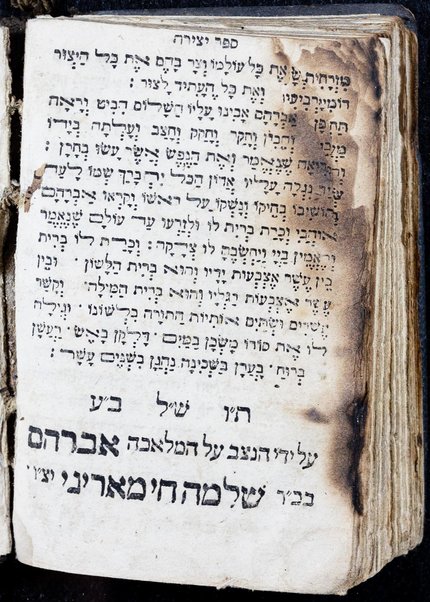 ספר יצירה
את כל עולמו וצר בהם את כל היצור
ואת כל העתיד לצור :
אברהם אבינו עליו השלום הביט וראה
והבין וחקר וחקק וחצב ועלתה בידו
שנאמר ואת הנפש אשר עשו בחרן :
נגלה עליו אדון הכל יתברך שמו לעד
והושיבו בחיקו ונשקו על ראשו וקראו אברהם
אוהבי וכרת ברית לו ולזרעו עד עולם שנאמר
והאמין ביי ויחשבה לו צדקה : וכרת לו ברית
בין עשר אצבעות ידיו והוא ברית הלשון · ובין
עשר אצבעות רגליו והוא ברית המילה · וקשר
עשרים ושתים אותיות התורה בלשונו · וגילה
לו את סודו משכן במים · דלקן באש · רעשן
ברוח · בערן בשכינה נהגן בשנים עשר :
ת״ו ש״ל ב״ע
על ידי הנצב על המלאכה אברהם
בכ״ר שלמה חי מאריני יצ״ו